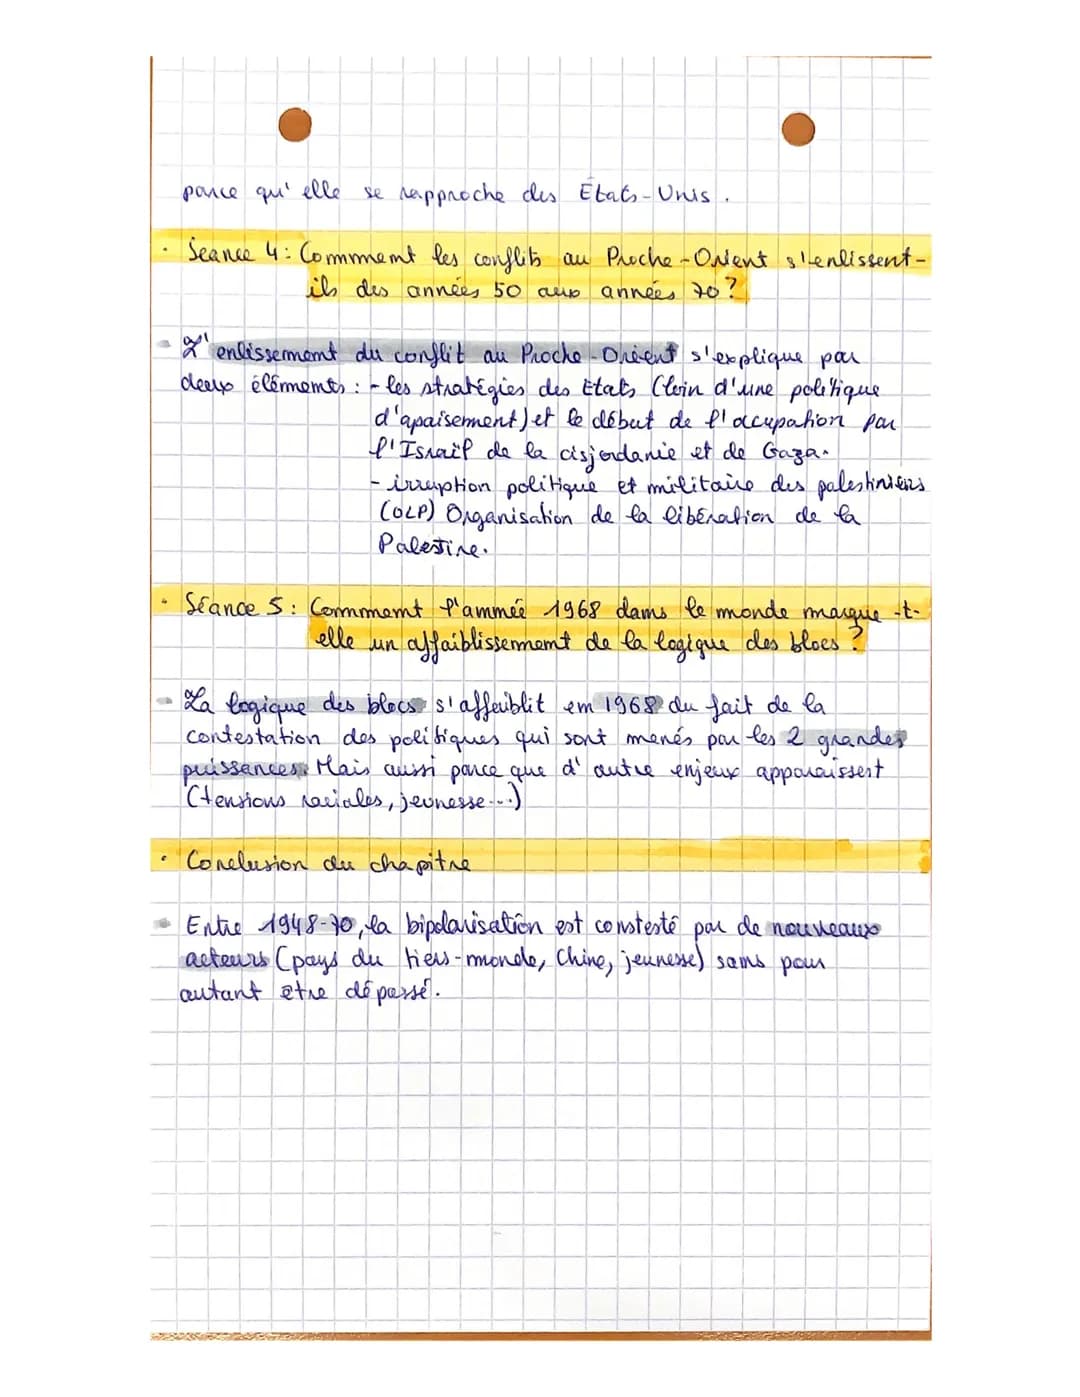 parce qu'elle se rapproche des États-Unis.
• Seance 4: Comment les conflits au Proche-Orient s'enlissent-
ils des années 50 aux années 70?
- L'enlissement du conflit au Proche-Orient s'explique par
deux éléments: - les stratégies des Etats (loin d'une politique
d'apaisement) et le début de l'occupation par
l'Israël de la cisjordanie et de Gaza.
- irruption politique et militaire des palestiniens
(OLP) Organisation de la libération de la
Palestine.
• Séance 5: Comment l'année 1968 dans le monde marque-t-
elle un affaiblissement de la logique des blocs?
- La logique des blocs s'affaiblit en 1968 du fait de la
contestation des politiques qui sont menés par les 2 grandes
puissances. Mais aussi parce que d'autre enjeux apparaissent
(tensions raciales, jeunesse...)
• Conclusion du chapitre
- Entre 1948-70, la bipolarisation est contesté par de nouveaux
acteurs (pays du tiers-monde, Chine, jeunesse) sans pour
autant etre dépassé.